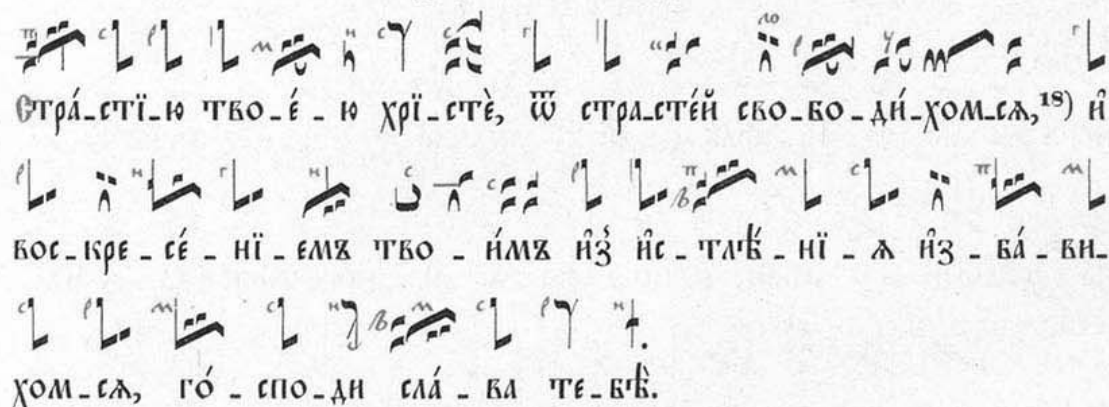 Стра́_стї_ю тво_е́_ю хрї_стѐ, ѿ стра_сте́й сво_бо_ди́_хом_сѧ,¹⁸⁾ и҆
вос_кре_се́_нї_емъ тво_и́мъ и҆з̾ и҆с_тлѣ́_нї_ѧ и҆з_ба́_ви_
хом_сѧ, го́_спо_ди сла́_ва те_бѣ̀.